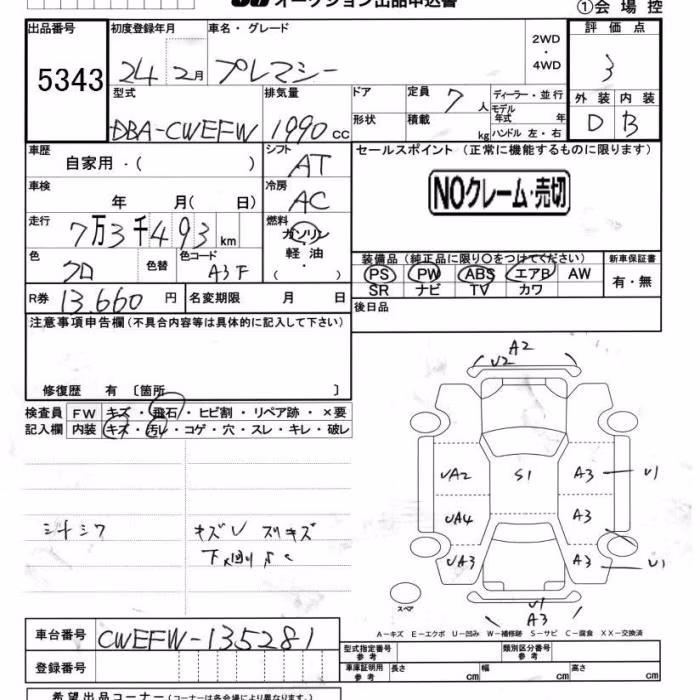 オークション出品申込書
①会場控
出品番号 初度登録年月 車名・グレード 2WD・4WD 評価点
5343 24 2月 プレマシー 3
型式 排気量 ドア 定員 7人 ディーラー・並行 外装 内装
モデル年式 年
DBA-CWEFW 1990cc 形状 積載 kg ハンドル 左・右 D B
車歴 シフト セールスポイント(正常に機能するものに限ります)
自家用・( ) AT
車検 冷房 NOクレーム・売切
年 月( 日) AC
走行 燃料
7万3千493km ガソリン
軽油・
( )
色 色替 色コード 装備品(純正品に限り○をつけてください) 新車保証書
クロ A3F PS PW ABS エアB AW 有・無
SR ナビ TV カワ
R券 13.660円 名変期限 月 日 後日品
注意事項申告欄(不具合内容等は具体的に記入して下さい)
修復歴 有 〔箇所 〕
検査員 FW キズ・飛石・ヒビ割・リペア跡・×要
記入欄 内装 キズ・汚レ・コゲ・穴・スレ・キレ・破レ
シートシワ キズU スリキズ
A2
U2
UA2 S1 A3 U1
UA4 A3
UA3 A3 U1
スペア U1
A3
A−キズ E−エクボ U−凹み W−補修跡 S−サビ C−腐食 XX−交換済
車台番号 CWEFW-135281
登録番号
型式指定番号 参考 類別区分番号 参考
車庫証明用 参考 長さ cm 幅 cm 高さ cm
希望出品コーナー(コーナーは各会場により異なります)